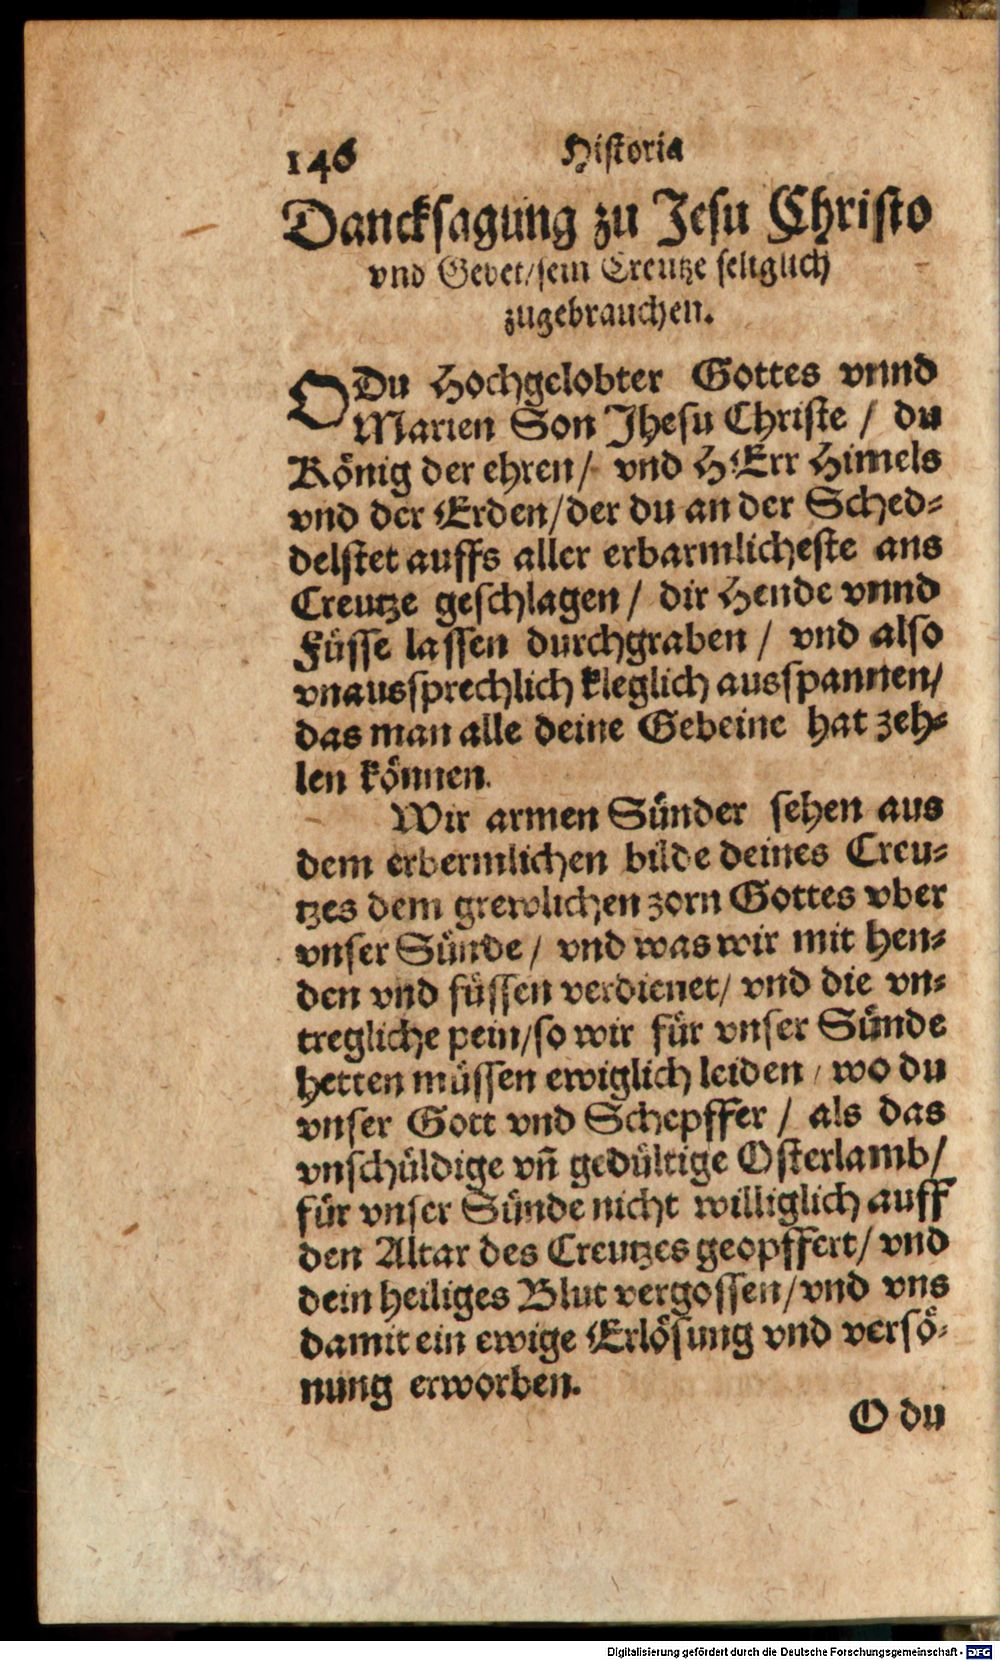 146 Historia
Dancksagung zu Jesu Christo
vnd Gebet/sein Creutze seliglich
zugebrauchen.
O Du Hochgelobter Gottes vnnd
Marien Son Jhesu Christe / du
König der ehren/ vnd HErr Himels
vnd der Erden/der du an der Sched-
delstet auffs aller erbarmlicheste ans
Creutze geschlagen / dir Hende vnnd
Füsse lassen durchgraben / vnd also
vnaussprechlich kleglich ausspannen/
das man alle deine Gebeine hat zeh-
len können.
Wir armen Sünder sehen aus
dem erbermlichen bilde deines Creu-
tzes dem grewlichen zorn Gottes vber
vnser Sünde / vnd was wir mit hen-
den vnd füssen verdienet/ vnd die vn-
tregliche pein/so wir für vnser Sünde
hetten müssen ewiglich leiden / wo du
vnser Gott vnd Schepffer / als das
vnschüldige vñ gedültige Osterlamb/
für vnser Sünde nicht williglich auff
den Altar des Creutzes geopffert/ vnd
dein heiliges Blut vergossen/vnd vns
damit ein ewige Erlösung vnd versö-
nung erworben.
O du
Digitalisierung gefördert durch die Deutsche Forschungsgemeinschaft - DFG